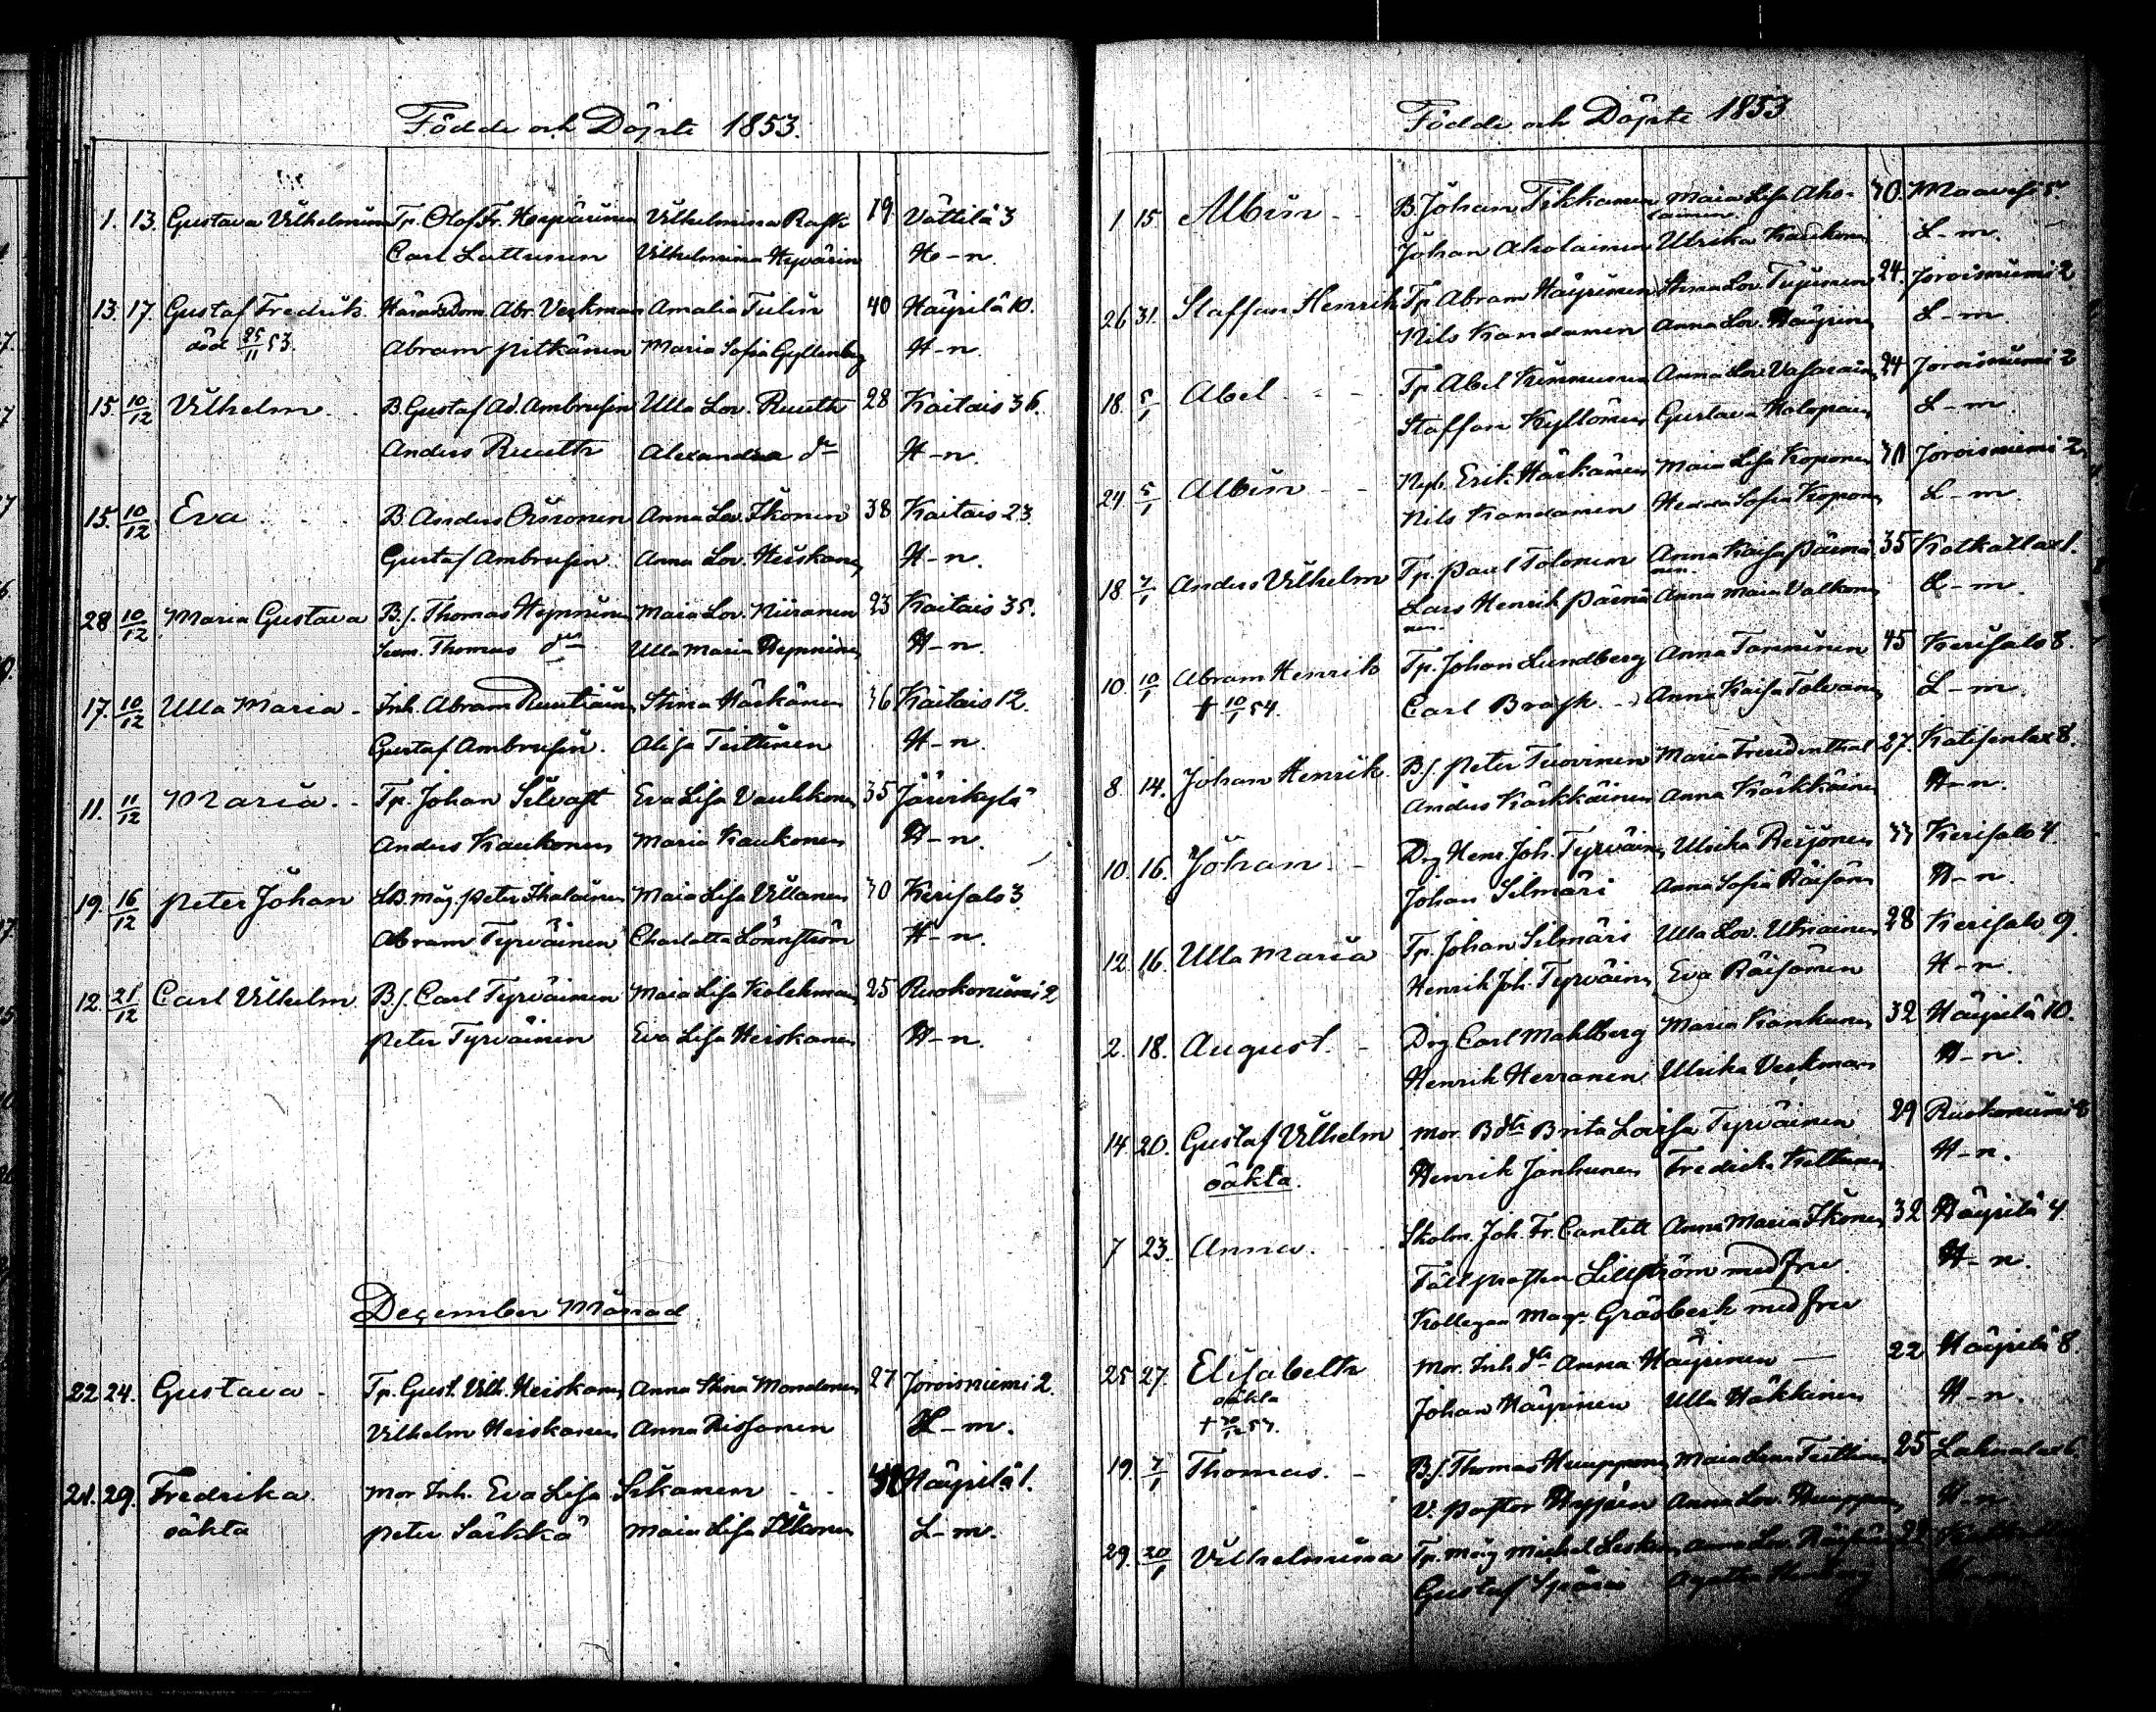 Födde och Döpte 1853.
1. 13. Gustava Vilhelmina Tp. Olof Fr. Hyvärinen Vilhelmina Rask 19 Vättilä 3
Carl Lattunen Vilhelmina Hyvärin H-n.
13. 17. Gustaf Fredrik. Härads Dom. Abr. Veskman Amalia Tulin 40 Häyrilä 10.
död 25/11 53. Abram Pitkänen Maria Sofia Gyllenberg H-n.
15. 10/12 Vilhelm. B. Gustaf Ad. Ambrusin Ulla Lov. Ruuth 28 Kaitais 36.
Anders Ruuth Alexandra do H-n.
15. 10/12 Eva B. Anders Orronen Anna Lov. Ikonen 38 Kaitais 23.
Gustaf Ambrusin Anna Lov. Heiskanen H-n.
28 10/12 Maria Gustava B.s. Thomas Heynninen Maria Lov. Niiranen 23 Kaitais 35.
Thomas do Ulla Maria Heynninen H-n.
17. 10/12 Ulla Maria - Inh. Abram Ruutiainen Stina Härkänen 36 Kaitais 12.
Gustaf Ambrusin. Alisa Teittinen H-n.
11. 11/12 Maria. - Tp. Johan Silvast Eva Lisa Vauhkonen 35 Järvikylä
Anders Kaukonen Maria Kaukonen H-n.
19. 16/12 Peter Johan LB. måg. Peter Ihalainen Maia Lisa Villanen 30 Kerisalo 3
Abram Tyrväinen Charlotta Lönnström H-n.
12. 21/12 Carl Vilhelm B.s. Carl Tyrväinen Maia Lisa Kolehmainen 25 Ruokoniemi 2
Peter Tyrväinen Eva Lisa Heiskanen H-n.
December Månad
22 24. Gustava - Tp. Gust. Vilh. Heiskanen Anna Stina Mondonen 27 Joroisniemi 2.
Vilhelm Heiskanen Anna Rissanen L-m.
21. 29. Fredrika. Mor Inh. Eva Lisa Sikanen Häyrilä 1.
oäkta Peter Särkkä Maia Lisa Ilkonen L-m.
Födde och Döpte 1853
1 15. Albin - - B. Johan Tikkanen Maia Lisa Aholainen 30. Maavesi 5.
Johan Aholainen Ulrika Kaukonen L-m.
26 31. Staffan Henrik Tp. Abram Häyrinen Stina Lov. Tujunen 24. Joroisniemi 2
Nils Kandamen Anna Lov. Häyrinen L-m.
18. 5/1 Abel. - - Tp. Abel Kinnunen Anna Lov. Vasarain 24 Joroisniemi 2
Staffan Kyllönen Gustava Holopain L-m.
24 5/1 Albin - - Nyb. Erik Härkänen Maia Lisa Koponen Joroisniemi 2
Nils Kandamen Hedda Sofia Koponen L-m.
18 7/1 Anders Vilhelm Tp. Paul Tolonen Anna Kaisa Pärnänen. 35 Kotkatlax 1.
Lars Henrik Pärnänen. Anna Maia Valkonen L-m.
10. 10/1 Abram Henrik Tp. Johan Lundberg Anna Tanninen 45 Kerisalo 8.
† 10/1 54. Carl Brask. Anna Kaisa Tolvanen L-m.
8. 14. Johan Henrik B.s. Peter Tuovinen Maria Freidenthal 27. Katisenlax 8.
Anders Kärkkäinen Anna Kärkkäinen H-n.
10. 16. Johan. - Drg Henr. Joh. Tyrväinen Ulrika Reijonen 33 Kerisalo 4.
Johan Silmäri Anna Sofia Räisänen H-n.
12. 16. Ulla Maria Tp. Johan Silmäri Ulla Lov. Utriainen 28 Kerisalo 9.
Henrik Joh. Tyrväinen Eva Räisänen H-n.
2. 18. August. - Drg Carl Mahlberg Maria Kankunen 32 Häyrilä 10.
Henrik Herranen Ulrika Veskman H-n.
14. 20. Gustaf Vilhelm Mor. Bdtr Brita Lovisa Tyrväinen 29 Ruokoniemi 8
oäkta. Henrik Janhunen Fredrika Kettunen H-n.
7 23. Anna. Skolm. Joh. Fr. Cantell Anna Maria Ikonen 32 Häyrilä 4
Fält prosten Lillström med fru. H-n.
Kollegan Mag. Gråsbeck med fru
25 27. Elisabeth Mor. Inh. dtr Anna Häyrinen — 22 Häyrilä 8.
oäkta Johan Häyrinen Ulla Häkkinen H-n.
19. 7/1 Thomas. - B.s. Thomas Humppanen Maia Lena Teittinen 25 Lahnalax 6
V. Pastor Hyppén Anna Lov. Humppanen H-n.
29. 20/1 Vilhelmina Tp. måg Michel Leskinen Anna Lov. Räisänen
Gustaf